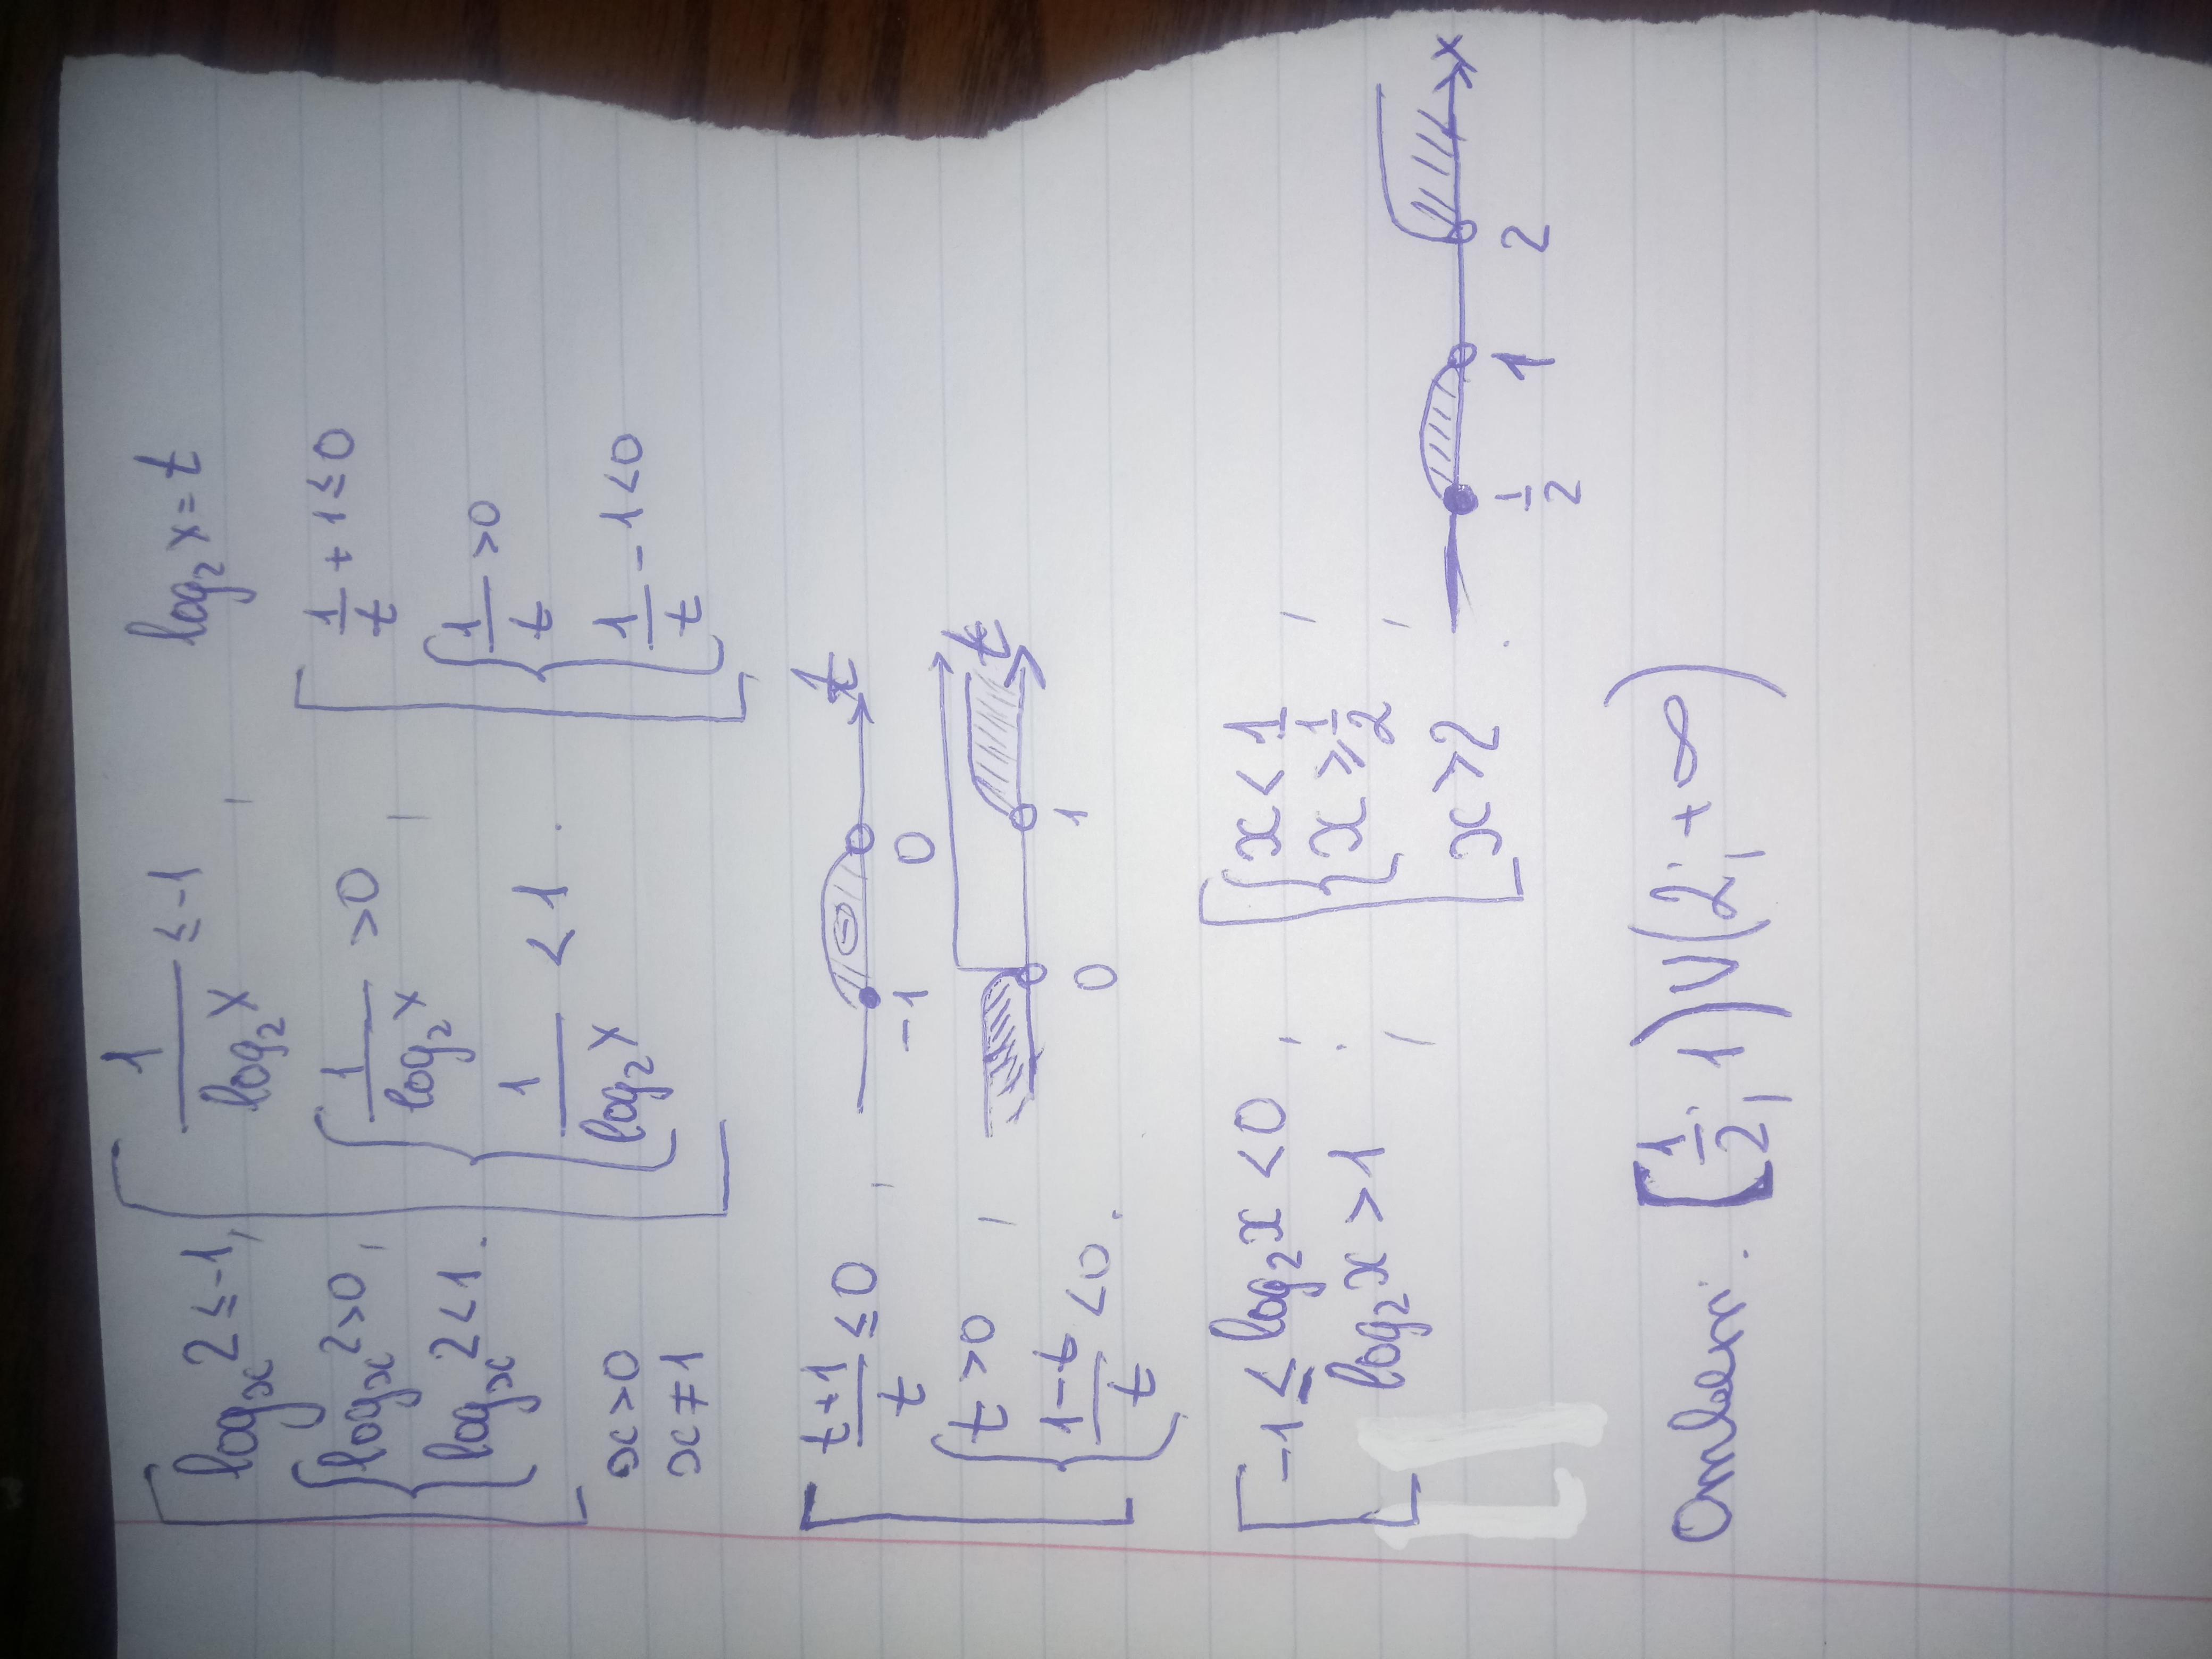 log_x 2 ≤ -1,
log_x 2 > 0,
log_x 2 < 1.
x > 0
x ≠ 1
1/log₂x ≤ -1,
1/log₂x > 0,
1/log₂x < 1.
log₂x = t
1/t + 1 ≤ 0
1/t > 0
1/t - 1 < 0
(t+1)/t ≤ 0,
t > 0,
(1-t)/t < 0.
-1 0 t
0 1 t
-1 ≤ log₂x < 0;
log₂x > 1;
x < 1,
x ≥ 1/2,
x > 2.
1/2 1 2 x
Ответ: [1/2; 1) ∪ (2; +∞)